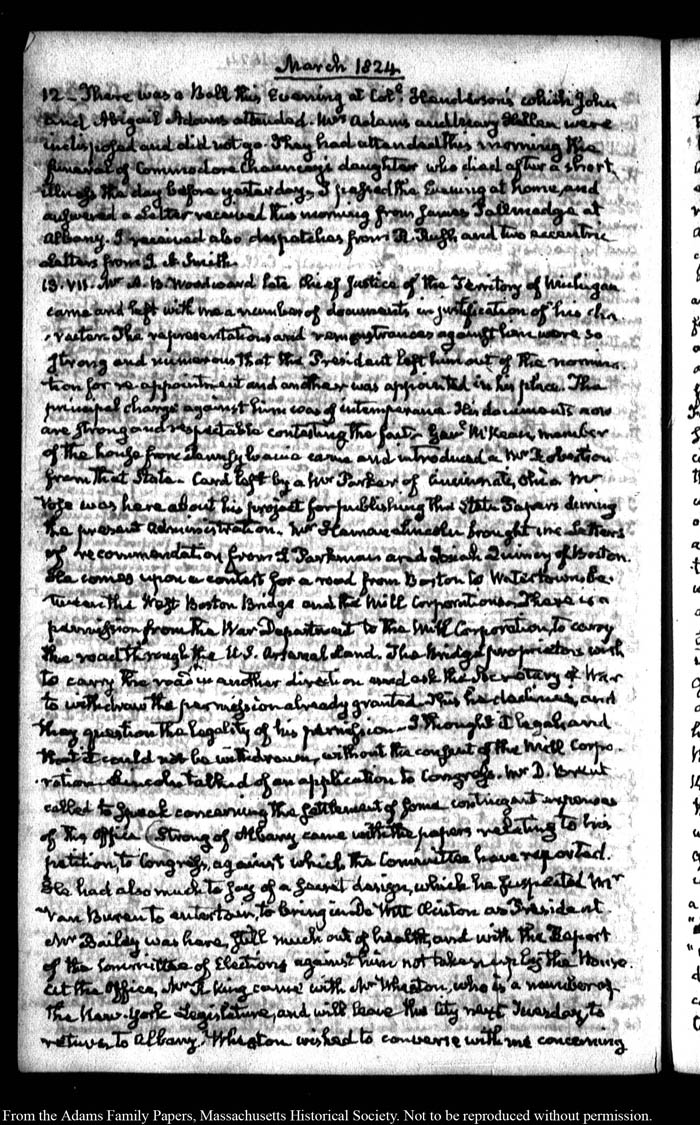 March 1824
12. There was a Ball this Evening at Col.l Henderson's which John
and Abigail Adams attended. Mrs Adams and Mary Hellen were
indisposed and did not go. They had attended this morning the
funeral of Commodore Chauncey's daughter who died after a short
illness the day before yesterday. I passed the Evening at home, and
answered a Letter received this morning from James Tallmadge at
Albany. I received also despatches from R. Rush, and two eccentric
Letters from J. A. Smith.
13. VII. Mr A. B. Woodward late Chief Justice of the Territory of Michigan
came and left with me a number of documents in justification of his cha
racter. The representations and remonstrances against him were so
strong and numerous that the President left him out of the nomina
tion for re-appointment and another was appointed in his place. The
principal charge against him was of intemperance. His documents now
are strong and respectable contesting the fact. Genl McKean, member
of the house from Pennsylvania came and introduced a Mr Robertson
from that State. Card left by a Mr Parker of Cincinnati, Ohio. Mr
Vose was here about his project for publishing the State Papers during
the present Administration. Mr Heman Lincoln brought me Letters
of recommendation from Parkman and Josiah Quincy of Boston.
He comes upon a contest for a road from Boston to Watertown be-
tween the West Boston Bridge and the Mill Corporations. There is a
permission from the War Department to the Mill Corporation, to carry
this road through the U.S. Arsenal Land. The Bridge proprietors wish
to carry the road in another direction and ask the Secretary of War
to withdraw the permission already granted. This he declines, and
they question the legality of his permission. I thought it legal, and
that it could not be withdrawn, without the consent of the Mill Corpo-
ration. Lincoln talked of an application to Congress. Mr D. Brent
called to speak concerning the settlement of some contingent expenses
of the Office. Strong of Albany came with the papers relating to his
petition, to Congress, against which, the Committee have reported.
He had also much to say of a secret design, which he suspected Mr
Van Buren to entertain, to bring in De Witt Clinton as President.
Mr Bailey was here, still much out of health, and with the Report
of the Committee of Elections against him not taken up by the House.
At the Office, Mr R. King came with Mr Wheaton, who is a member of
the New-York Legislature, and will leave this City next Tuesday, to
return to Albany. Wheaton wished to converse with me concerning
From the Adams Family Papers, Massachusetts Historical Society. Not to be reproduced without permission.